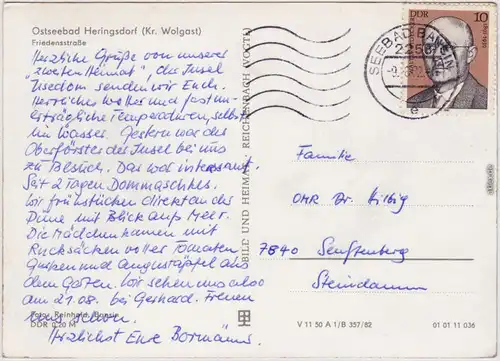 Ostseebad Heringsdorf (Kr. Wolgast)
Friedensstraße
Herzliche Grüße von unserer
"zweiten Heimat", der Insel
Usedom senden wir Euch.
Herrliches Wetter und fast un-
erträgliche Temperaturen, selbst
im Wasser. Gestern war der
Oberförster der Insel bei uns
zu Besuch. Das war interessant.
Seit 2 Tagen Dommaschkes.
Wir frühstücken direkt an der
Düne mit Blick aufs Meer.
Die Mädchen kamen mit
Rucksäcken voller Tomaten
Gurken und Augustäpfel aus
dem Garten. Wir sehen uns also
am 21.08. bei Gerhard. Freuen
uns schon.
Foto: Reinhold,
DDR 0,20 M
Herzlichst Eure Bormanns
BILD UND HEIMAT REICHENBACH (VOGTL)
DDR
10
SEEBAD BANSIN
2255
e
Familie
OMR Dr. Hilbig
7840 Senftenberg
Steindamm
V 11 50 A 1/B 357/82
01 01 11 036